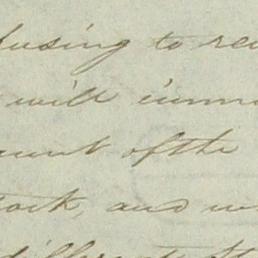 fusing to rec
will imme
ment of the
tock, and w
different St